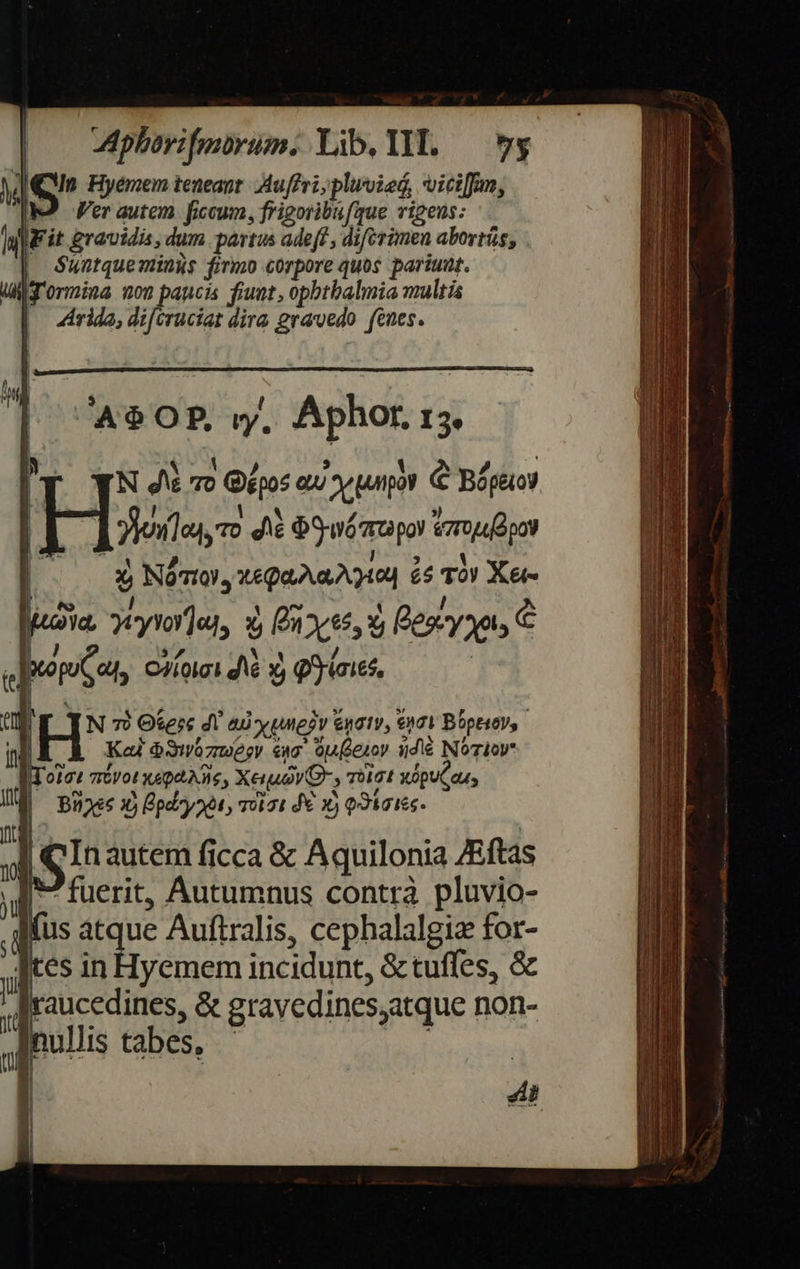 Aphoriſmorum. Lib. III. 75
SIn Hyemem teneant Auſtri, pluviæq́, viciſſim,
Ver autem ſiccum, frigoribúſque rigens:
Fit gravidis, dum partus adeſt, diſcrimen abortûs,
Suntque minùs firmo corpore quos pariunt.
Tormina non paucis fiunt, ophthalmia multis
Arida, diſcruciat dira gravedo ſenes.
ἈΦΟΡ. ιγ΄. Aphor. 13.
ΗΝ δὲ τὸ Θέρος αὐχμηρὸν ϗ Βόρειον
γένηται, τὸ δὲ Φθινόπωρον ἔπομβρον
ϗ Νότιον, κεφαλαλγίαι ἐς τὸν Χει-
μῶνα γίγνονται, ϗ βῆχες, ϗ βράγχοι, ϗ
κόρυζαι, ἐνίοισι δὲ ϗ φθίσιες.
ΗΝ τὸ Θέρος δ᾽ αὐχμηρὸν ἔησιν, ἔησι Βόρειον,
Καὶ Φθινόπωρον ἔησ᾽ ὄμβριον ἠδὲ Νότιον·
Τοῖσι πόνοι κεφαλῆς, Χειμῶνος, τοῖσι κόρυζαι,
Βῆχες ϗ βράγχοι, τοῖσι δὲ ϗ φθίσιες.
SIn autem ſicca & Aquilonia Æſtas
fuerit, Autumnus contrà pluvio-
ſus atque Auſtralis, cephalalgiæ for-
tes in Hyemem incidunt, & tuſſes, &
raucedines, & gravedines, atque non-
nullis tabes.
At